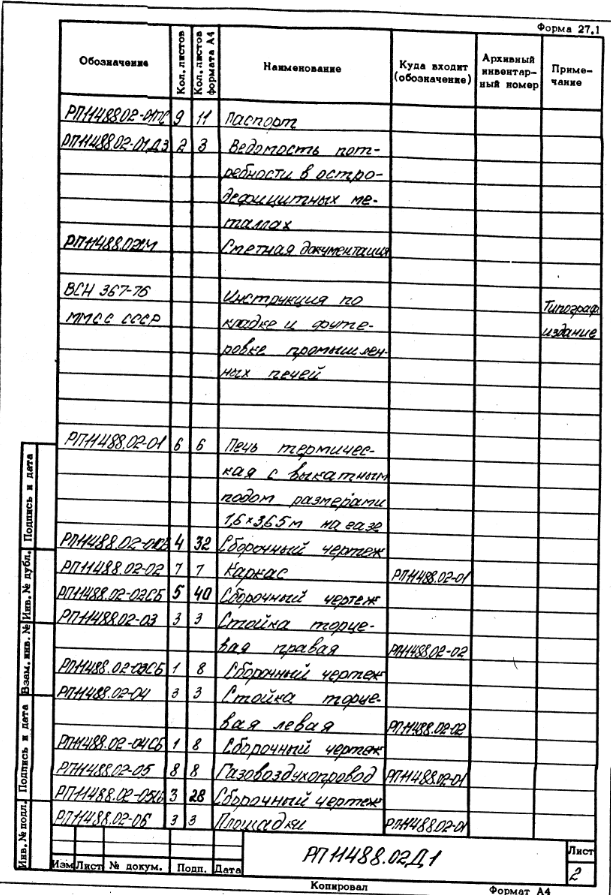 Форма 27.1
Обозначение Кол. листов Кол. листов формата А4 Наименование Куда входит (обозначение) Архивный инвентарный номер Примечание
РП11488.02-01ПС 9 11 Паспорт
РП11488.02-01Д3 2 3 Ведомость пот-
ребности в остро-
дефицитных ме-
таллах
Сметная документация
ВСН 367-76 Инструкция по Типограф.
ММСС СССР кладке и футе- издание
ровке промышлен-
ных печей
РП11488.02-01 6 6 Печь термичес-
кая с выкатным
подом размерами
1,6×3,65м на газе
РП11488.02-01СБ 4 32 Сборочный чертеж
РП11488.02-02 7 7 Каркас РП11488.02-01
РП11488.02-02СБ 5 40 Сборочный чертеж
РП11488.02-03 3 3 Стойка торце-
вая правая РП11488.02-02
РП11488.02-03СБ 1 8 Сборочный чертеж
РП11488.02-04 3 3 Стойка торце-
вая левая РП11488.02-02
РП11488.02-04СБ 1 8 Сборочный чертеж
РП11488.02-05 8 8 Газовоздухопровод РП11488.02-01
РП11488.02-05СБ 3 28 Сборочный чертеж
РП11488.02-06 3 3 Площадки РП11488.02-01
Инв. № подл. Подпись и дата Взам. инв. № Инв. № дубл. Подпись и дата
РП11488.02Д1
Лист
2
Изм Лист № докум. Подп. Дата
Копировал Формат А4